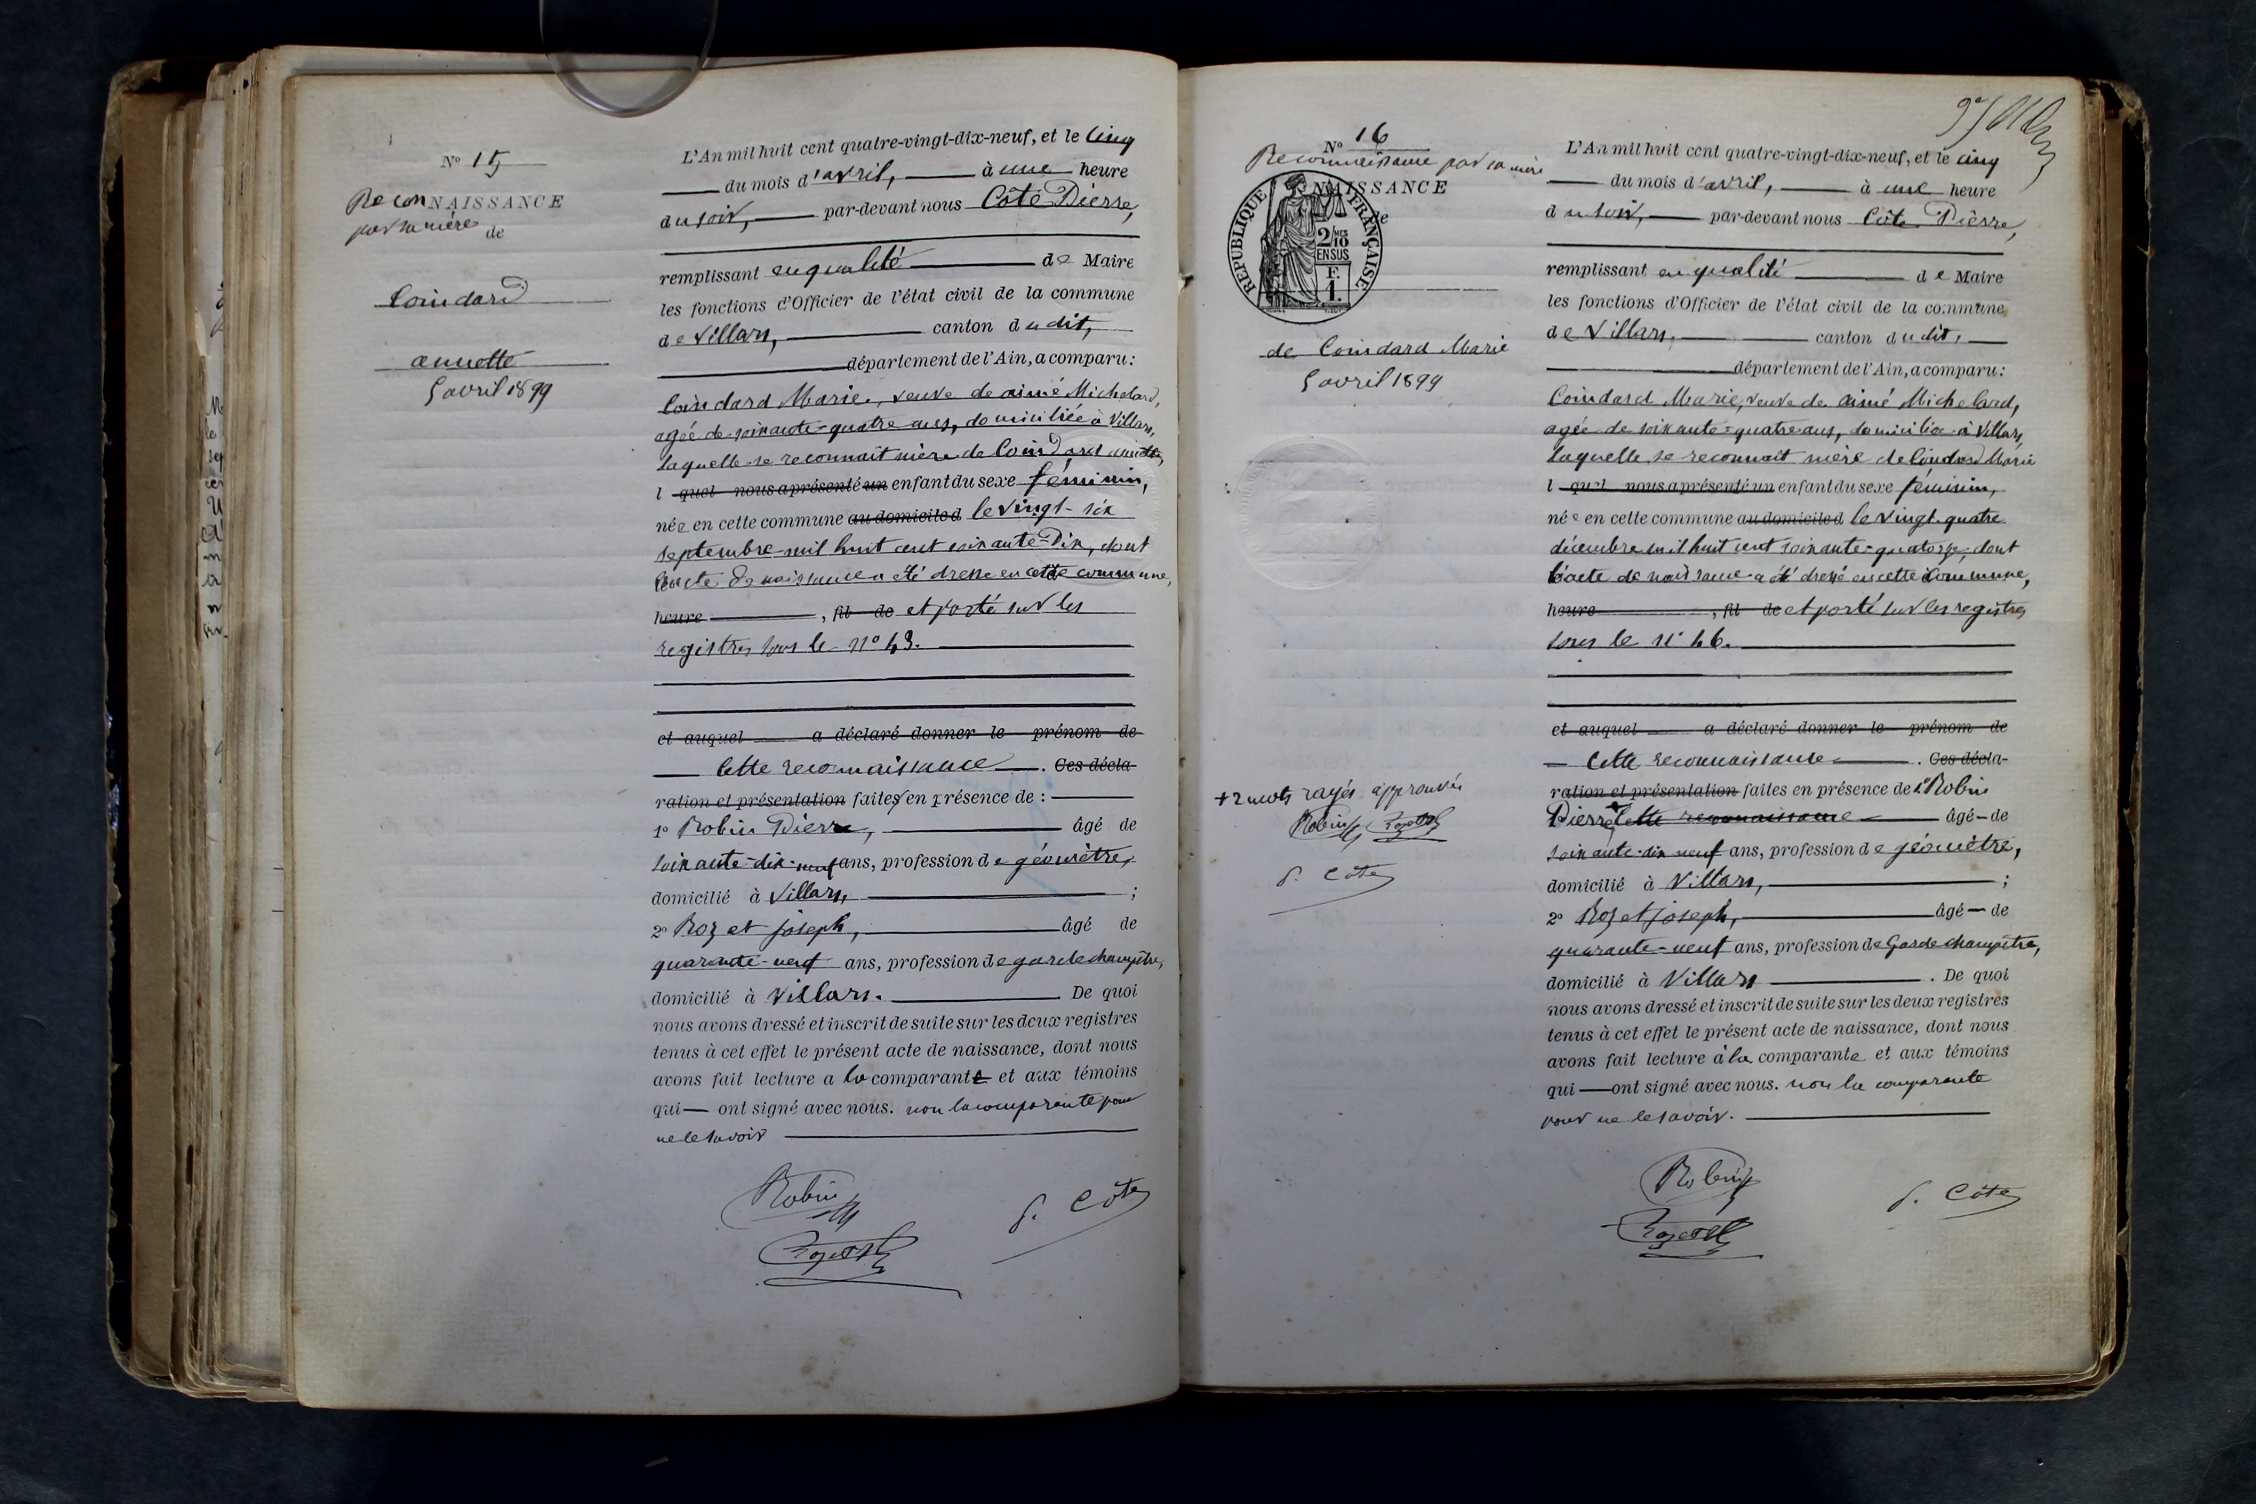 N° 15
ReconNAISSANCE
par sa mère
de
Coindard
annette
5 avril 1899
L'An mil huit cent quatre-vingt-dix-neuf, et le cinq
du mois d'avril, à une heure
du soir, par-devant nous Côte Pierre,
remplissant en qualité de Maire
les fonctions d'Officier de l'état civil de la commune
de Villars, canton dudit,
département de l'Ain, a comparu:
Coindard Marie, veuve de aimé Michelard,
agée de soixante-quatre ans, domiciliée à Villars,
laquelle se reconnait mère de Coindard annette,
l quel nous a présenté un enfant du sexe féminin,
née en cette commune au domicile d le vingt-six
septembre mil huit cent soixante-dix, dont
l'acte de naissance a été dressé en cette commune,
heure , fil de et porté sur les
registres sous le n° 43.
et auquel a déclaré donner le prénom de
Cette reconnaissance . Ces décla-
ration et présentation faites en présence de :
1° Robin Pierre, âgé de
soixante-dix-neuf ans, profession de géomètre,
domicilié à Villars, ;
2° Rozet joseph, âgé de
quarante-neuf ans, profession de garde champêtre,
domicilié à Villars. De quoi
nous avons dressé et inscrit de suite sur les deux registres
tenus à cet effet le présent acte de naissance, dont nous
avons fait lecture a la comparante et aux témoins
qui ont signé avec nous. non la comparante pour
ne le savoir
Robin
P. Côte
Rozet
N° 16
Reconnaissance par sa mère
NAISSANCE
de
REPUBLIQUE FRANÇAISE
2/10 MES
EN SUS
F.
1.
de Coindard Marie
5 avril 1899
+ 2 mots rayés approuvés
Robin Rozet
P. Côte
L'An mil huit cent quatre-vingt-dix-neuf, et le cinq
du mois d'avril, à une heure
du soir, par-devant nous Côte Pierre,
remplissant en qualité de Maire
les fonctions d'Officier de l'état civil de la commune
de Villars, canton dudit,
département de l'Ain, a comparu:
Coindard Marie, veuve de aimé Michelard,
agée de soixante-quatre ans, domiciliée à Villars,
laquelle se reconnait mère de Coindard Marie
l quel nous a présenté un enfant du sexe féminin,
née en cette commune au domicile d le vingt-quatre
décembre mil huit cent soixante-quatorze, dont
l'acte de naissance a été dressé en cette commune,
heure , fil de et porté sur les registres
sous le n° 46.
et auquel a déclaré donner le prénom de
Cette reconnaissance . Ces décla-
ration et présentation faites en présence de 1° Robin
Pierre, Cette reconnaissance âgé de
soixante-dix neuf ans, profession de géomètre,
domicilié à Villars, ;
2° Rozet joseph, âgé de
quarante-neuf ans, profession de Garde champêtre,
domicilié à Villars . De quoi
nous avons dressé et inscrit de suite sur les deux registres
tenus à cet effet le présent acte de naissance, dont nous
avons fait lecture à la comparante et aux témoins
qui ont signé avec nous. non la comparante
pour ne le savoir.
Robin
P. Côte
Rozet